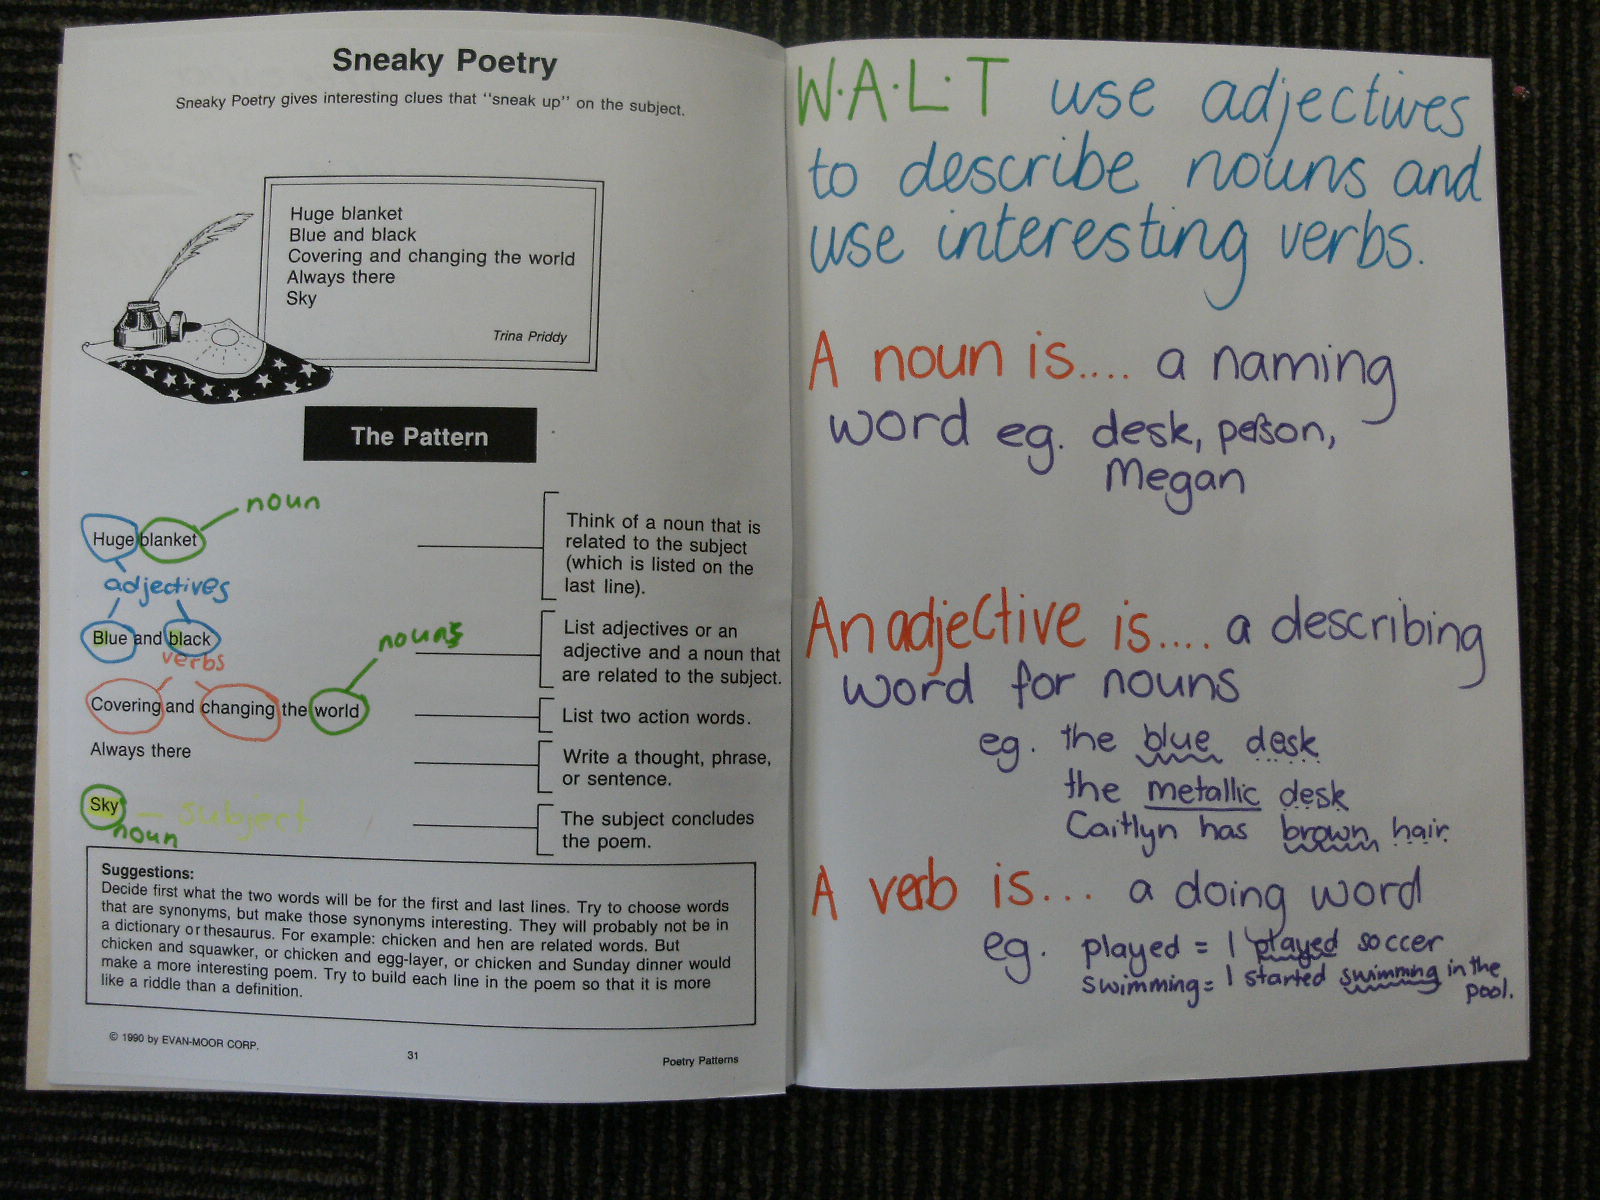 Sneaky Poetry
Sneaky Poetry gives interesting clues that "sneak up" on the subject.
Huge blanket
Blue and black
Covering and changing the world
Always there
Sky
Trina Priddy
The Pattern
noun
Huge blanket
Think of a noun that is
related to the subject
(which is listed on the
last line).
adjectives
Blue and black
nouns
List adjectives or an
adjective and a noun that
are related to the subject.
verbs
Covering and changing the world
List two action words.
Always there
Write a thought, phrase,
or sentence.
Sky - subject
noun
The subject concludes
the poem.
Suggestions:
Decide first what the two words will be for the first and last lines. Try to choose words
that are synonyms, but make those synonyms interesting. They will probably not be in
a dictionary or thesaurus. For example: chicken and hen are related words. But
chicken and squawker, or chicken and egg-layer, or chicken and Sunday dinner would
make a more interesting poem. Try to build each line in the poem so that it is more
like a riddle than a definition.
© 1990 by EVAN-MOOR CORP.
31
Poetry Patterns
W.A.L.T use adjectives
to describe nouns and
use interesting verbs.
A noun is.... a naming
word eg. desk, person,
Megan
An adjective is.... a describing
word for nouns
eg. the blue desk
the metallic desk
Caitlyn has brown hair.
A verb is... a doing word
eg. played = I played soccer
swimming = I started swimming in the
pool.